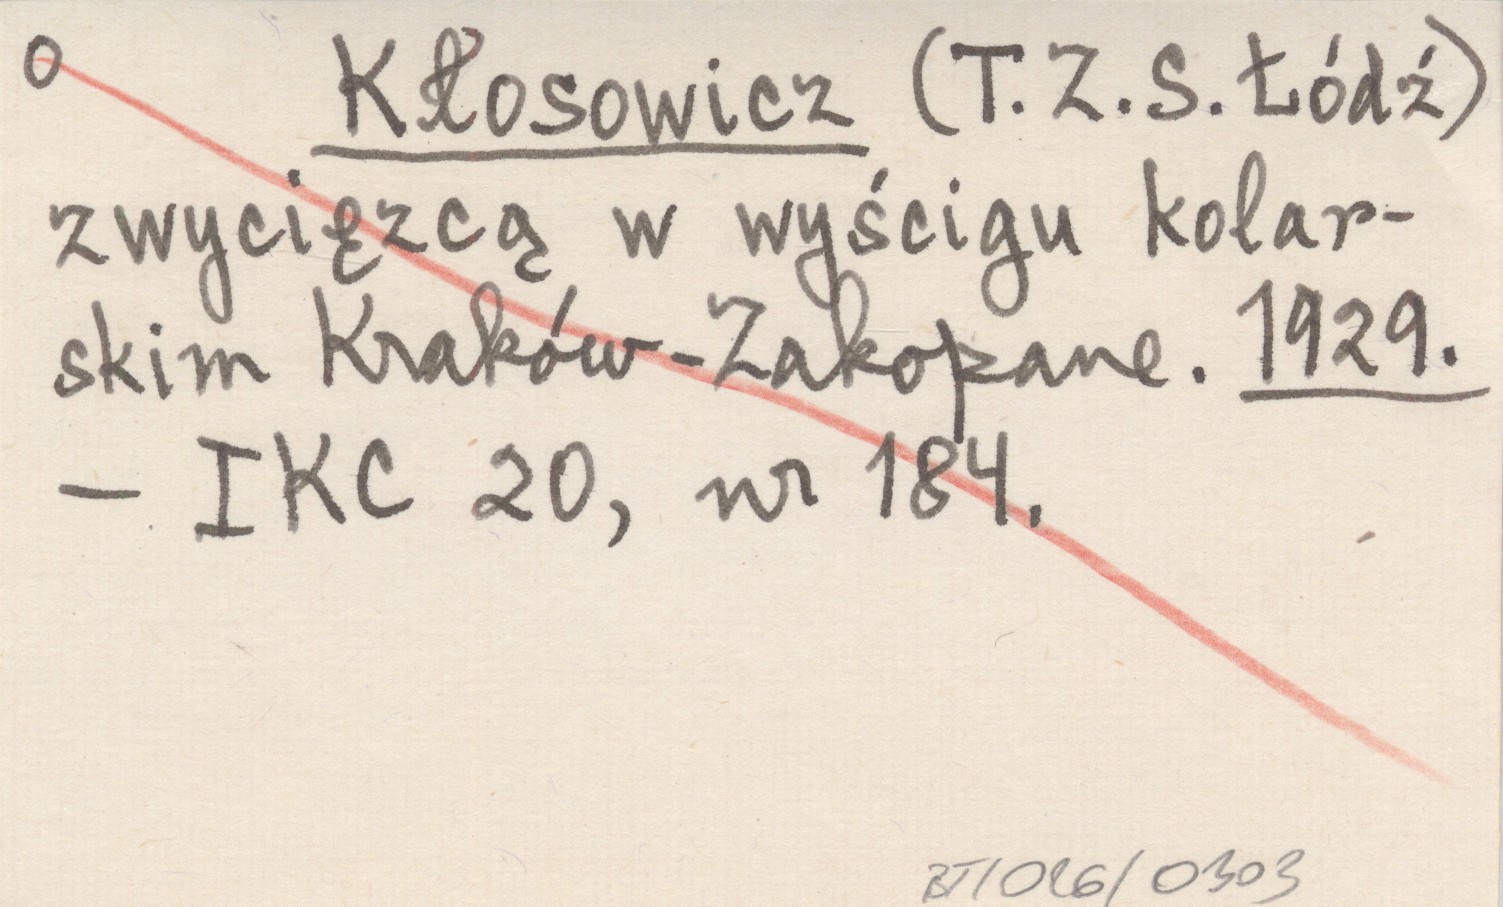 o Kłosowicz (T.Z.S. Łódź)
zwycięzcą w wyścigu kolar-
skim Kraków-Zakopane. 1929.
— IKC 20, nr 184.
BT/026/0303